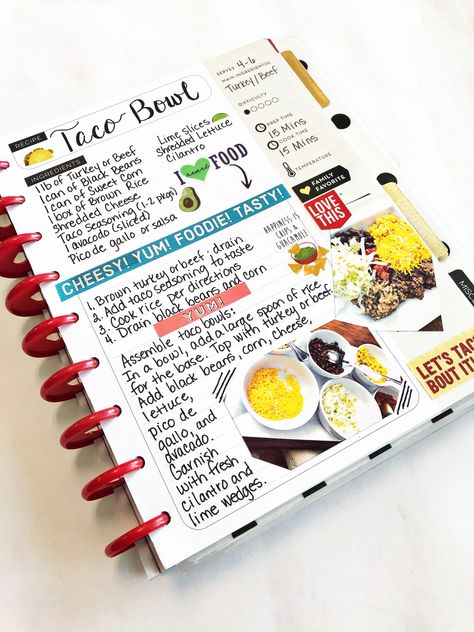 RECIPE
Taco Bowl
INGREDIENTS
1 lb of Turkey or Beef
1 can of Black Beans
1 can of Sweet Corn
1 box of Brown Rice
Shredded Cheese
Taco seasoning (1-2 pkgs)
1 avocado (sliced)
Pico de gallo or salsa
Lime slices
Shredded Lettuce
Cilantro
I heart FOOD
CHEESY! YUM! FOODIE! TASTY!
1. Brown turkey or beef; drain
2. Add taco seasoning to taste
3. Cook rice per directions
4. Drain black beans and corn
YUM!
Assemble taco bowls:
In a bowl, add a large spoon of rice
for the base. Top with turkey or beef.
Add black beans, corn, cheese,
lettuce,
pico de
gallo, and
avacado.
Garnish
with fresh
cilantro and
lime wedges.
HAPPINESS IS
CHIPS &
GUACAMOLE
SERVES 4-6
MAIN INGREDIENT(S)
Turkey/Beef
DIFFICULTY
PREP TIME
15 Mins
COOK TIME
15 Mins
TEMPERATURE
FAMILY
FAVORITE
LOVE
THIS
LET'S TACO
BOUT IT!